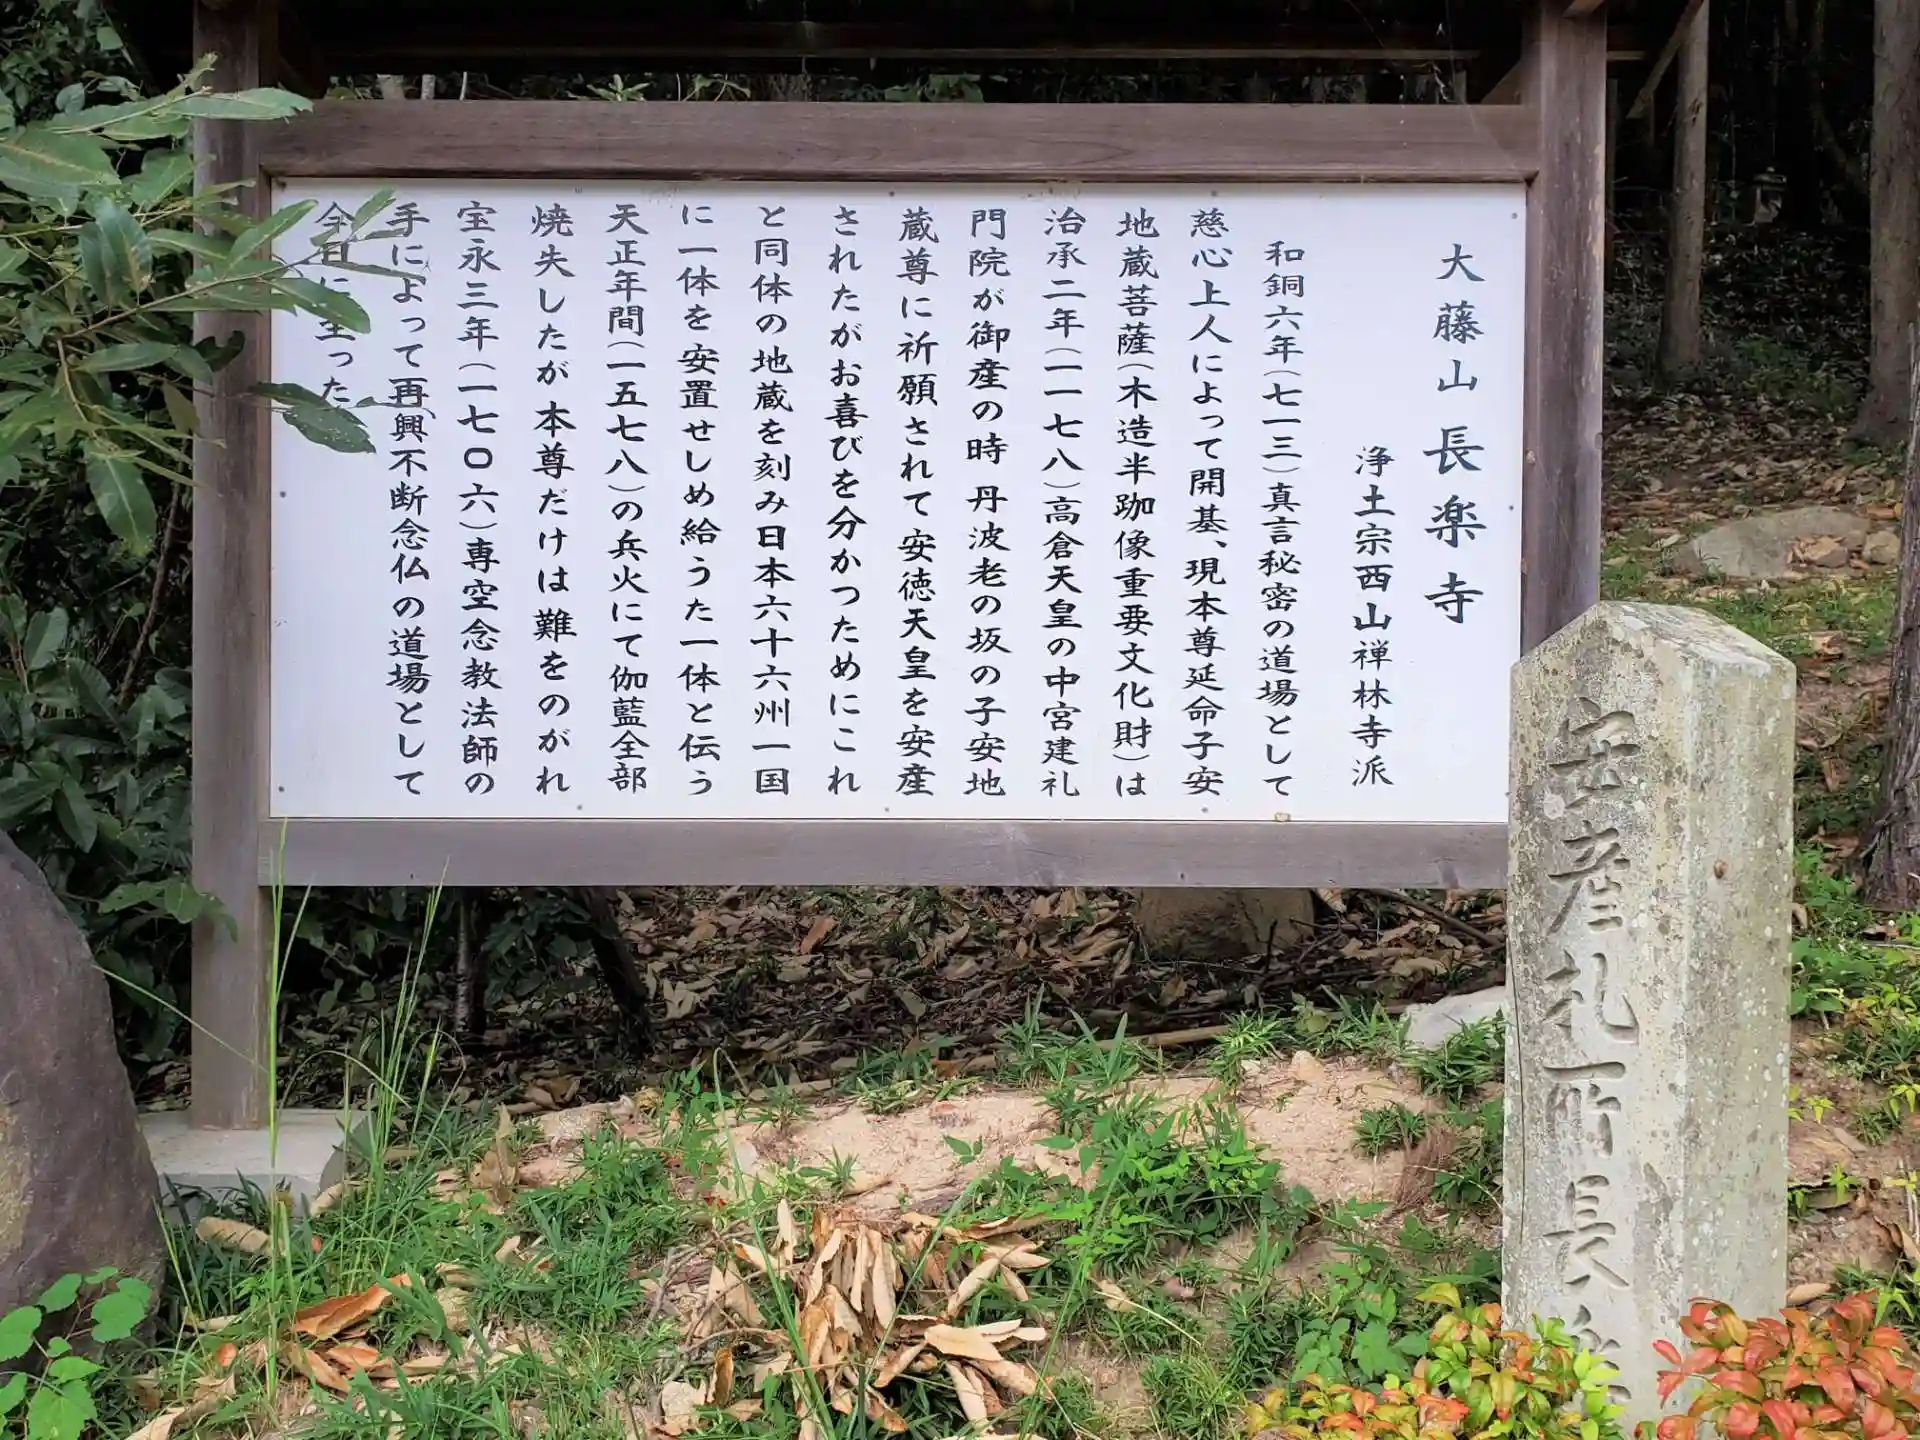 大藤山長楽寺
浄土宗西山禅林寺派
和銅六年(七一三)真言秘密の道場として
慈心上人によって開基、現本尊延命子安
地蔵菩薩(木造半跏像重要文化財)は
治承二年(一一七八)高倉天皇の中宮建礼
門院が御産の時丹波老の坂の子安地
蔵尊に祈願されて安徳天皇を安産
されたがお喜びを分かつためにこれ
と同体の地蔵を刻み日本六十六州一国
に一体を安置せしめ給うた一体と伝う
天正年間(一五七八)の兵火にて伽藍全部
焼失したが本尊だけは難をのがれ
宝永三年(一七〇六)専空念教法師の
手によって再興、不断念仏の道場として
今日に至った
安産札所長楽